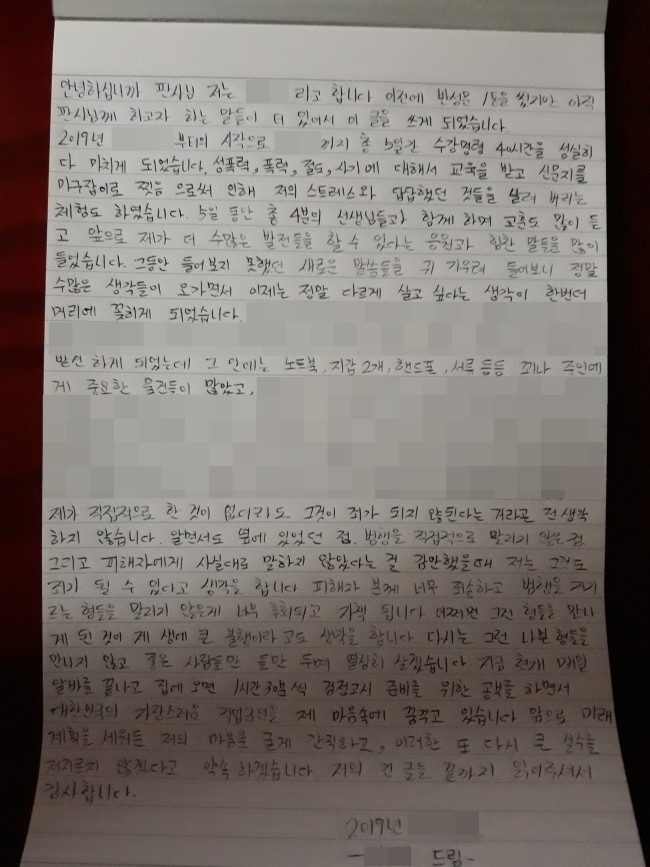 안녕하십니까 판사님 저는 라고 합니다 이전에 반성문 1통을 썼지만 아직
판사님께 하고자 하는 말들이 더 있어서 이 글을 쓰게 되었습니다
2019년 부터의 시작으로 까지 총 5일간 수강명령 40시간을 성실히
다 마치게 되었습니다. 성폭력, 폭력, 절도, 사기에 대해서 교육을 받고 신문지를
마구잡이로 찢음으로써 인해 저의 스트레스와 답답했던 것들을 날려 버리는
체험도 하였습니다. 5일 동안 총 4분의 선생님들과 함께 하며 교훈도 많이 듣
고 앞으로 제가 더 수많은 발전들을 할 수 있다는 응원과 힘찬 말들을 많이
들었습니다. 그동안 들어보지 못했던 새로운 말씀들을 귀 기우려 들어보니 정말
수많은 생각들이 오가면서 이제는 정말 다르게 살고 싶다는 생각이 한번더
머리에 꽂히게 되었습니다.
발신 하게 되었는데 그 안에는 노트북, 지갑 2개, 핸드폰, 서류 등등 꽤나 주인에
게 중요한 물건들이 많았고,
제가 직접적으로 한 것이 없더라도 그것이 죄가 되지 않는다는 거라곤 전 생각
하지 않습니다. 알면서도 옆에 있었던 점, 범행을 직접적으로 말리지 않은 점
그리고 피해자에게 사실대로 말하지 않았다는 걸 감안했을때 저는 그것도
죄가 될 수 있다고 생각을 합니다 피해자 분께 너무 죄송하고 범행을 저지
르는 형들을 말리지 않은게 너무 후회되고 가책 됩니다 어쩌면 그런 형들을 만나
게 된 것이 제 생에 큰 불행이라고도 생각을 합니다. 다시는 그런 나쁜 형들을
만나기 않고 좋은 사람들만 두며 열심히 살겠습니다 지금 현재 매일
알바를 끝나고 집에 오면 1시간 30분씩 검정고시 준비를 위한 공부를 하면서
대한민국의 자랑스러운 직업군인을 제 마음속에 꿈꾸고 있습니다. 앞으로 미래
계획을 세워둔 저의 마음을 굳게 간직하고, 이러한 또 다시 큰 실수를
저지르지 않겠다고 약속하겠습니다. 저의 긴 글을 끝까지 읽어주셔서
감사합니다.
2019년
- 드림-